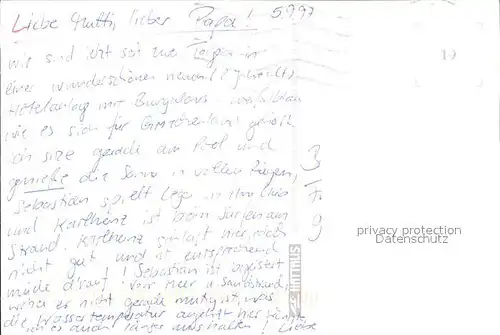 Liebe Mutti, lieber Papa! 5.9.97
wir sind jetzt seit zwei Tagen in
einer wunderschönen neuen
Hotelanlage mit Bungalows weißblau
wie es sich für Griechenland gehört.
Ich sitze gerade am Pool und
genieße die Sonne in vollen Zügen,
Sebastian spielt Lego
und Karlheinz ist beim Surfen am
Strand. Karlheinz schläft hier noch
nicht gut und ist entsprechend
müde drauf! Sebastian ist begeistert
vom Meer u. Sandstrand,
wobei er nicht gerade mutig ist, was
die Wassertemperatur angeht hier könnte
ich es auch länger aushalten! Liebe
privacy protection
Datenschutz